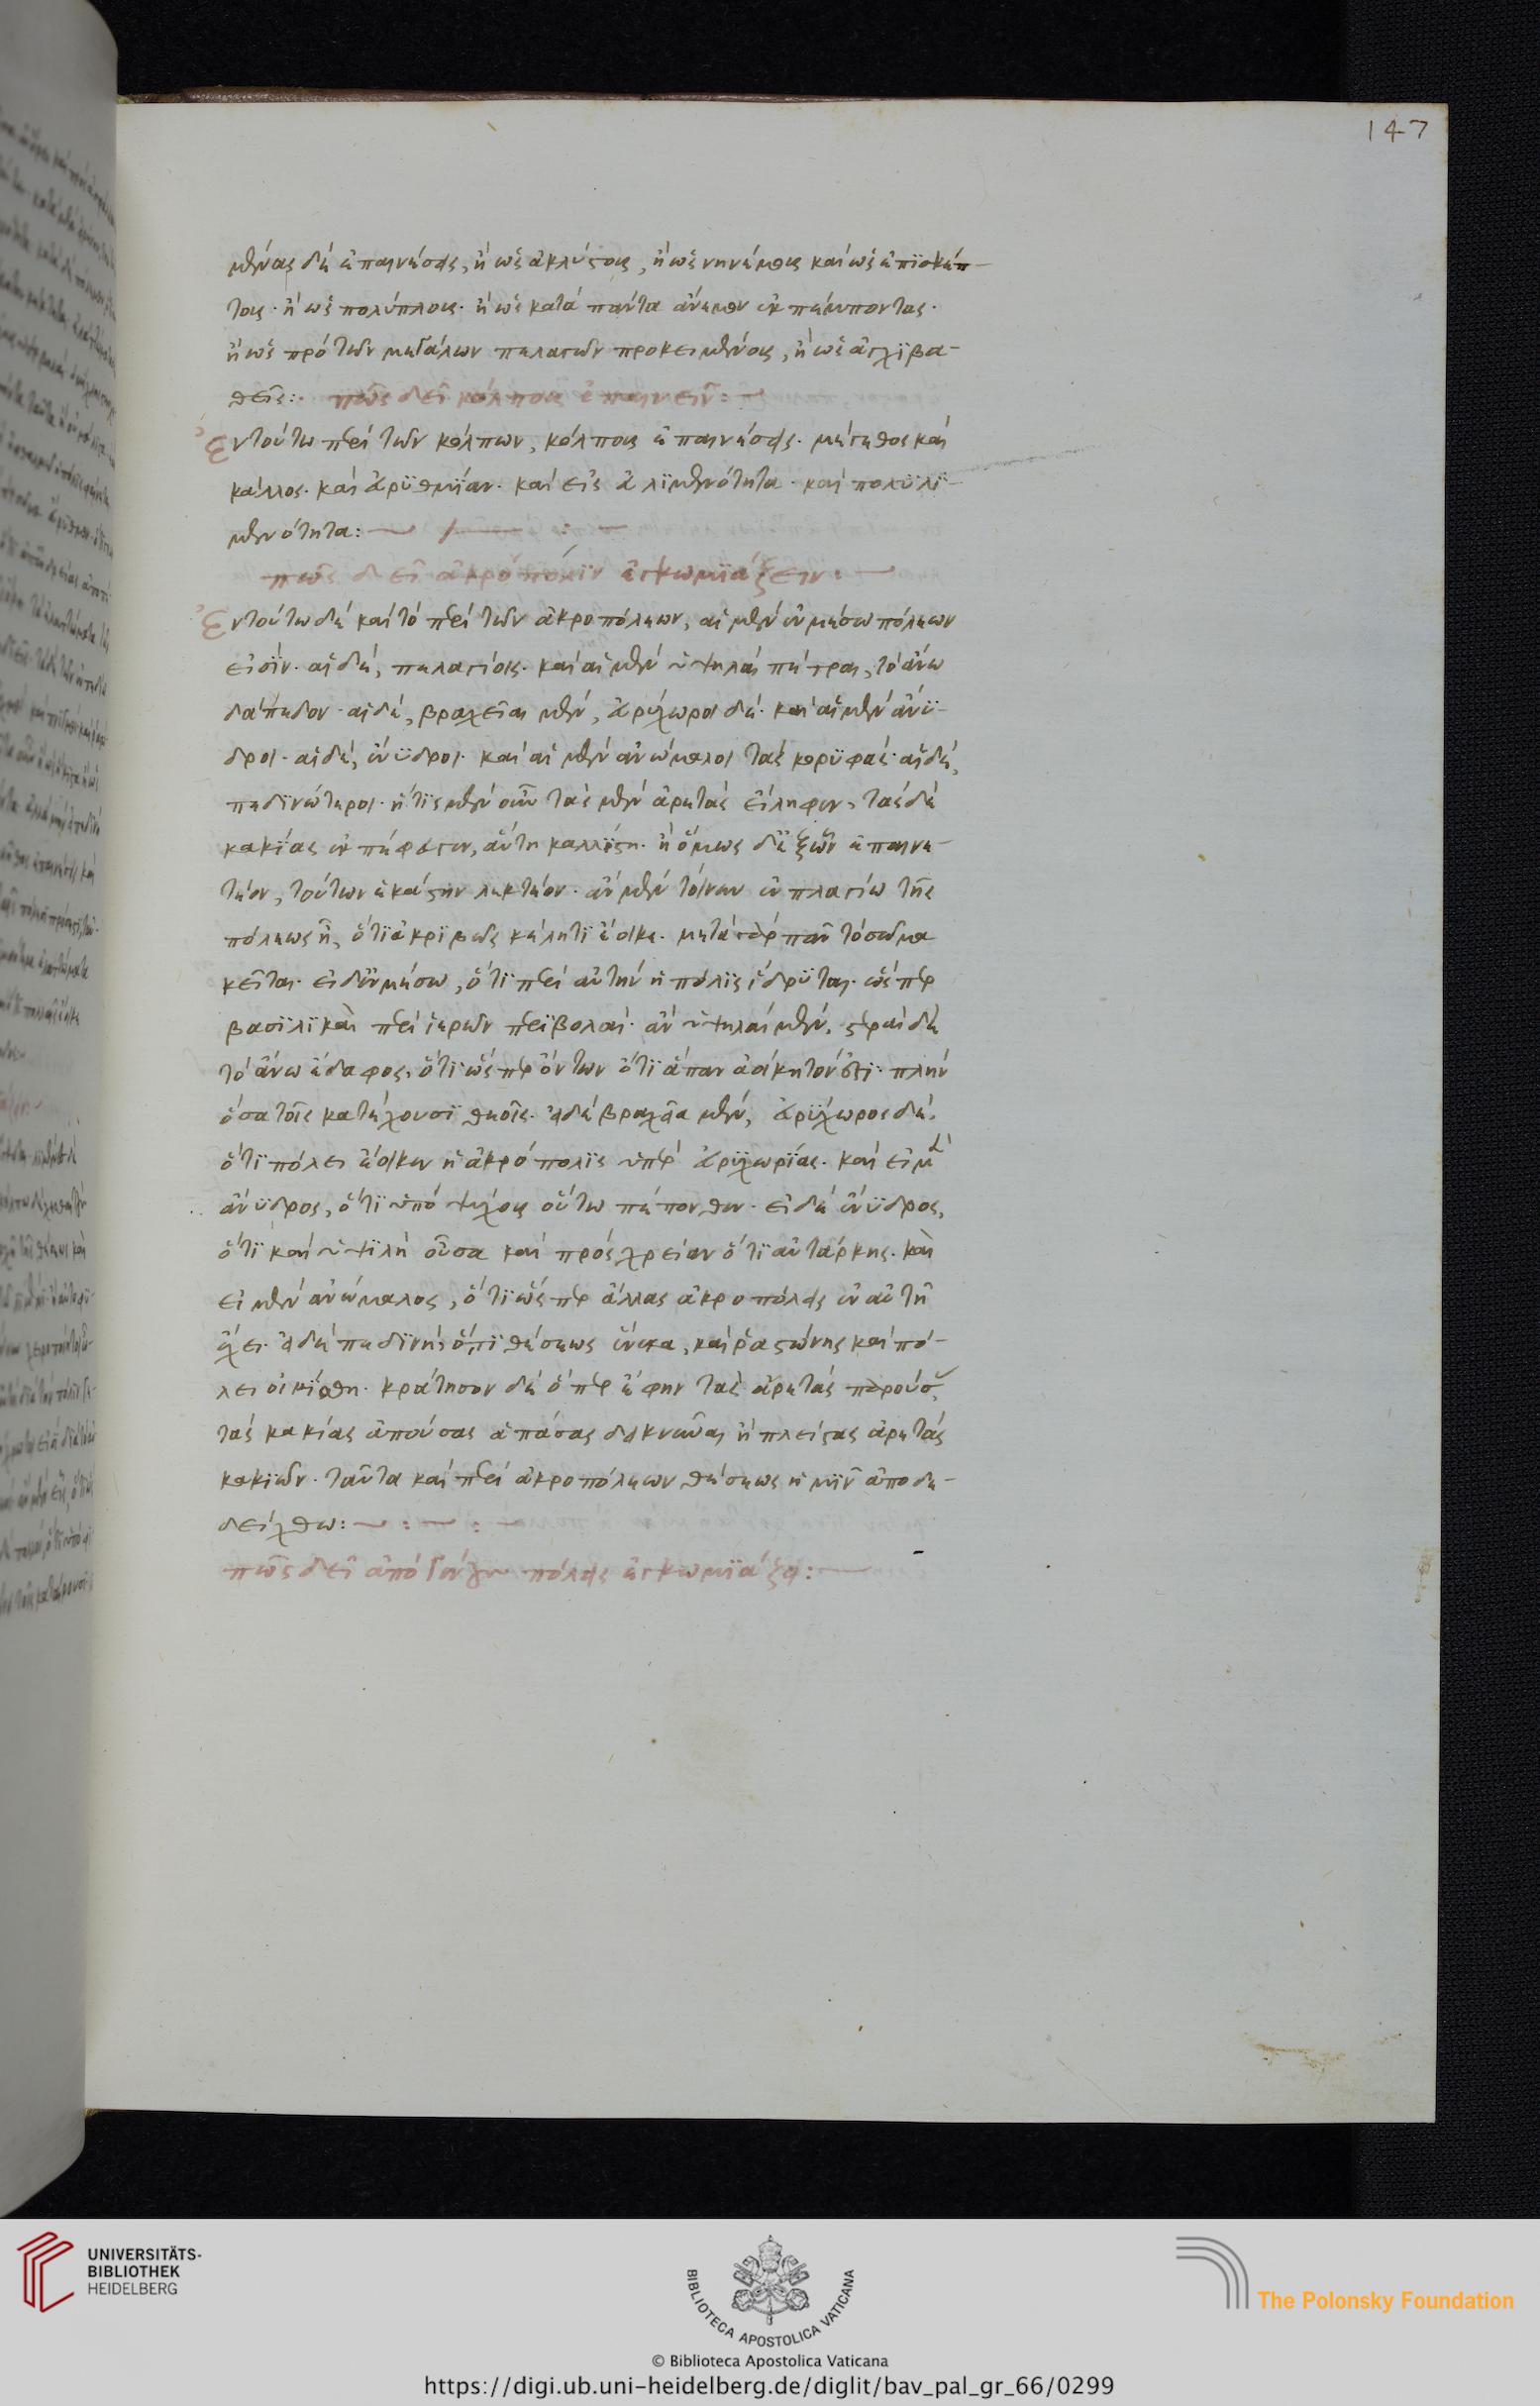 147
μένας δὲ ἐπαινέσεις, ἢ ὡς ἀκλύστους, ἢ ὡς νηνέμους καὶ ὡς ἐπϊσκέπ-
τους· ἢ ὡς πολύπλους· ἢ ὡς κατὰ πάντα ἄνεμον ἐκπέμποντας·
ἢ ὡς πρὸ τῶν μεγάλων πελαγῶν προκειμένους, ἢ ὡς ἀγχϊβα-
θεῖς: πῶς δεῖ κόλπους ἐπαινεῖν:
Ἐν τούτω περὶ τῶν κόλπων, κόλπους ἐπαινέσεις· μέγεθος καὶ
κάλλος· καὶ εὐρϋθμϊαν· καὶ εἰς εὐλϊμενότητα· καὶ πολϋλϊ-
μενότητα:
πῶς δεῖ ἀκρόπολϊν ἐγκωμϊάζειν:
Ἐν τούτω δὲ καὶ τὸ περὶ τῶν ἀκροπόλεων, αἱ μὲν ἐν μέσω πόλεων
εἰσϊν· αἱ δὲ, πελαγίοις· καὶ αἱ μὲν ὑψηλαὶ πέτραι, τὸ ἄνω
δάπεδον· αἱ δὲ, βραχεῖαι μὲν, εὐρύχωροι δέ· καὶ αἱ μὲν ἄνϋ-
δροι· αἱ δὲ, ἔνϋδροι· καὶ αἱ μὲν ἀνώμαλοι τὰς κορϋφάς· αἱ δὲ,
πεδϊνώτεροι· ἥτϊς μὲν οὖν τὰς μὲν ἀρετὰς εἴληφεν, τὰς δὲ
κακϊας ἐκπέφευγεν, αὕτη καλλϊστη· ἢ ὅμως δϊ ἑξῶν ἐπαινε-
τέον, τούτων ἑκάστην λεκτέον· ἂν μὲν τοίνυν ἐν πλαγίω τῆς
πόλεως ἦ, ὅτϊ ἀκρϊβῶς κελητϊ ἔοικε· μετὰ γὰρ πᾶν τὸ σῶμα
κεῖται· εἰ δ' ἐν μέσω, ὅτϊ περὶ αὐτὴν ἡ πόλϊς ἵδρϋται· ὥσπερ
βασϊλϊκαὶ περὶ ἱερῶν περϊβολαί· ἂν ὑψηλαὶ μὲν, στεραὶ δὲ
τὸ ἄνω ἔδαφος, ὅτϊ ὥσπερ ὄντων ὅτϊ ἅπαν ἀοίκητόν ἐστϊ· πλὴν
ὅσα τοῖς κατέχουσϊ θεοῖς· εἰ δὲ βραχεῖα μὲν, εὐρϋχωρος δὲ·
ὅτϊ πόλει ἔοικεν ἡ ἀκρόπολϊς ὑπὲρ εὐρϋχωρϊας· καὶ εἰ μὲν
ἄνϋδρος, ὅτϊ ὑπὸ ψύχους οὕτω πέπονθεν· εἰ δὲ ἔνϋδρος,
ὅτϊ καὶ ὑψϊλὴ οὖσα καὶ πρὸς χρείαν ὅτϊ αὐτάρκης· καὶ
εἰ μὲν ἀνώμαλος, ὅτϊ ὥσπερ ἄλλας ἀκροπόλεις ἐν αὐτῆ
ἔχει· εἰ δὲ πεδϊνὴ, ὅτϊ θέσεως ἕνεκα, καὶ ῥαστώνης καὶ πό-
λει οἰκίσθη· κράτησον δὲ ὅπερ ἔφην τὰς ἀρετὰς παρούσας
τὰς κακίας ἀπούσας ἁπάσας δεικνῦναι ἢ πλείστας ἀρετὰς
κακιῶν· ταῦτα καὶ περὶ ἀκροπόλεων θέσεως ἡμῖν ἀποδε-
δείχθω:
πῶς δεῖ ἀπὸ γένους πόλεις ἐγκωμϊάζειν:
UNIVERSITÄTS-
BIBLIOTHEK
HEIDELBERG
BIBLIOTECA APOSTOLICA VATICANA
The Polonsky Foundation
© Biblioteca Apostolica Vaticana
https://digi.ub.uni-heidelberg.de/diglit/bav_pal_gr_66/0299